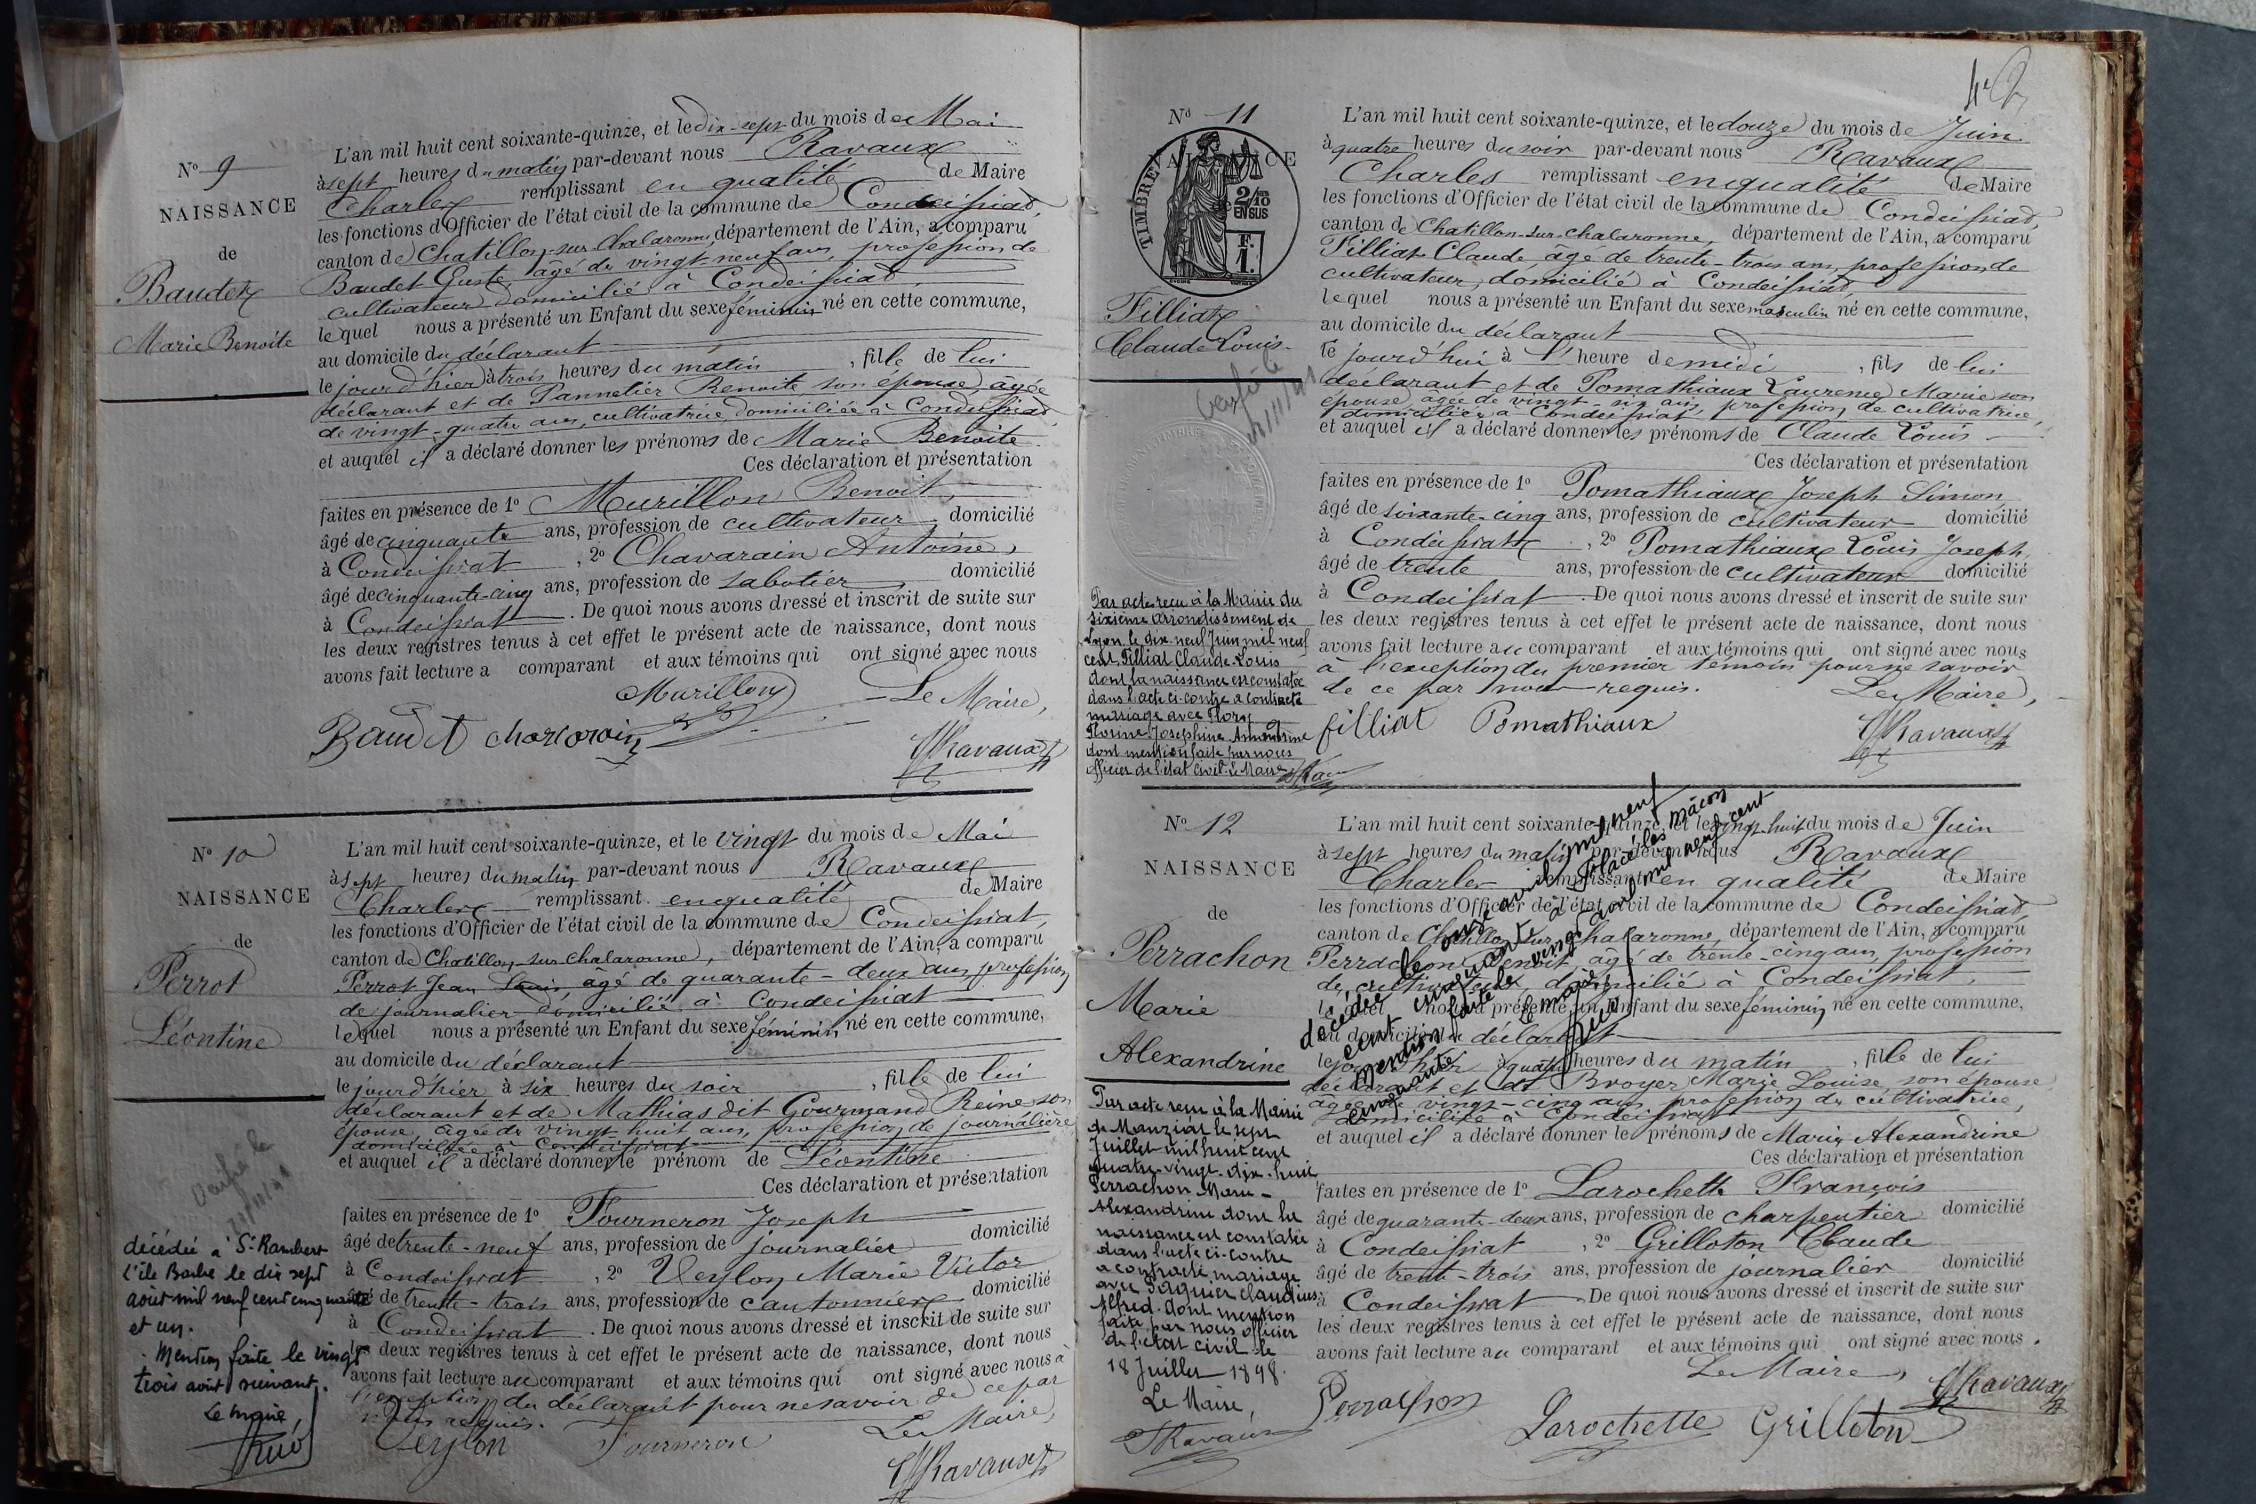 N° 9
NAISSANCE
de
Baudet
Marie Benoite
L'an mil huit cent soixante-quinze, et le dix-sept du mois de Mai
à sept heures du matin par-devant nous Ravaux
Charles remplissant en qualité de Maire
les fonctions d'Officier de l'état civil de la commune de Condeissiat,
canton de Chatillon-sur-Chalaronne, département de l'Ain, a comparu
Baudet Juste, âgé de vingt neuf ans, profession de
cultivateur domicilié à Condeissiat
lequel nous a présenté un Enfant du sexe féminin né en cette commune,
au domicile du déclarant
le jour d'hier à trois heures du matin, fille de lui
déclarant et de Pannetier Benoite son épouse, âgée
de vingt-quatre ans, cultivatrice, domiciliée à Condeissiat
et auquel il a déclaré donner les prénoms de Marie Benoite
Ces déclaration et présentation
faites en présence de 1° Murillon Benoit,
âgé de cinquante ans, profession de cultivateur, domicilié
à Condeissiat, 2° Chavarain Antoine,
âgé de cinquante-cinq ans, profession de sabotier domicilié
à Condeissiat. De quoi nous avons dressé et inscrit de suite sur
les deux registres tenus à cet effet le présent acte de naissance, dont nous
avons fait lecture a comparant et aux témoins qui ont signé avec nous
Murillon Le Maire,
Baudet Ravaux
N° 10
NAISSANCE
de
Perrot
Léontine
Vérifié le
décédée à St Rambert
l'île Barbe le dix sept
aout mil neuf cent cinquante
et un.
Mention faite le vingt
trois août suivant.
Le maire,
L'an mil huit cent soixante-quinze, et le vingt du mois de Mai
à sept heures du matin par-devant nous Ravaux
Charles remplissant en qualité de Maire
les fonctions d'Officier de l'état civil de la commune de Condeissiat,
canton de Chatillon-sur-Chalaronne, département de l'Ain, a comparu
Perrot Jean Louis, âgé de quarante-deux ans, profession
de journalier, domicilié à Condeissiat
lequel nous a présenté un Enfant du sexe féminin né en cette commune,
au domicile du déclarant
le jour d'hier à six heures du soir, fille de lui
déclarant et de Mathias dit Gourmand Reine son
épouse, âgée de vingt-huit ans, profession de journalière
domiciliée à Condeissiat
et auquel il a déclaré donner le prénom de Léontine
Ces déclaration et présentation
faites en présence de 1° Fourneron Joseph
âgé de trente-neuf ans, profession de journalier domicilié
à Condeissiat, 2° Veylon Marie Victor
âgé de trente-trois ans, profession de cantonnier domicilié
à Condeissiat. De quoi nous avons dressé et inscrit de suite sur
les deux registres tenus à cet effet le présent acte de naissance, dont nous
avons fait lecture au comparant et aux témoins qui ont signé avec nous à
l'exception du déclarant pour ne savoir de ce par
nous requis. Le Maire,
Veylon Fourneron Ravaux
N° 11
NAISSANCE
de
TIMBRE
2/10 EN SUS
F. 1.
Filliat
Claude Louis
Vérifié le
Par acte reçu à la Mairie du
sixième arrondissement de
Lyon le dix neuf Juin mil neuf
cent Filliat Claude-Louis
dont la naissance est constatée
dans l'acte ci-contre a contracté
mariage avec Flory
Josephine
dont mention faite par nous
officier de l'état civil. Le Maire,
L'an mil huit cent soixante-quinze, et le douze du mois de Juin
à quatre heures du soir par-devant nous Ravaux
Charles remplissant en qualité de Maire
les fonctions d'Officier de l'état civil de la commune de Condeissiat,
canton de Chatillon-sur-Chalaronne, département de l'Ain, a comparu
Filliat Claude âgé de trente-trois ans, profession de
cultivateur, domicilié à Condeissiat,
lequel nous a présenté un Enfant du sexe masculin né en cette commune,
au domicile du déclarant
le jourd'hui à l'heure de midi, fils de lui
déclarant et de Pomathiaux Laurence Marie son
épouse, âgée de vingt-six ans, profession de cultivatrice,
domiciliée à Condeissiat
et auquel il a déclaré donner les prénoms de Claude Louis
Ces déclaration et présentation
faites en présence de 1° Pomathiaux Joseph Simon
âgé de soixante-cinq ans, profession de cultivateur domicilié
à Condeissiat, 2° Pomathiaux Louis Joseph,
âgé de trente ans, profession de cultivateur domicilié
à Condeissiat. De quoi nous avons dressé et inscrit de suite sur
les deux registres tenus à cet effet le présent acte de naissance, dont nous
avons fait lecture au comparant et aux témoins qui ont signé avec nous
à l'exception du premier témoin pour ne savoir
de ce par nous requis. Le Maire,
filliat Pomathiaux Ravaux
N° 12
NAISSANCE
de
Perrachon
Marie
Alexandrine
Par acte reçu à la Mairie
de Manziat le sept
Juillet mil huit cent
quatre-vingt-dix-huit
Perrachon Marie-
Alexandrine dont la
naissance est constatée
dans l'acte ci-contre
a contracté mariage
avec Claudius
Alfred. dont mention
faite par nous officier
de l'état civil le
18 Juillet 1898.
Le Maire,
Ravaux
L'an mil huit cent soixante-quinze, et le vingt-huit du mois de Juin
à sept heures du matin par-devant nous Ravaux
Charles remplissant en qualité de Maire
les fonctions d'Officier de l'état civil de la commune de Condeissiat,
canton de Chatillon-sur-Chalaronne, département de l'Ain, a comparu
Perrachon Benoit, âgé de trente-cinq ans, profession
de cultivateur, domicilié à Condeissiat,
lequel nous a présenté un Enfant du sexe féminin né en cette commune,
au domicile du déclarant
le jour d'hier à quatre heures du matin, fille de lui
déclarant et de Broyer Marie Louise, son épouse
âgée de vingt-cinq ans, profession de cultivatrice,
domiciliée à Condeissiat
et auquel il a déclaré donner les prénoms de Marie Alexandrine
Ces déclaration et présentation
faites en présence de 1° Larochette François
âgé de quarante-deux ans, profession de charpentier domicilié
à Condeissiat, 2° Grilloton Claude
âgé de trente-trois ans, profession de journalier domicilié
à Condeissiat. De quoi nous avons dressé et inscrit de suite sur
les deux registres tenus à cet effet le présent acte de naissance, dont nous
avons fait lecture au comparant et aux témoins qui ont signé avec nous.
Le Maire,
Perrachon Larochette Grilloton Ravaux
décédée le onze avril mil neuf
cent cinquante à Flacé les Mâcon
mention faite le vingt avril mil neuf cent
cinquante
Le maire